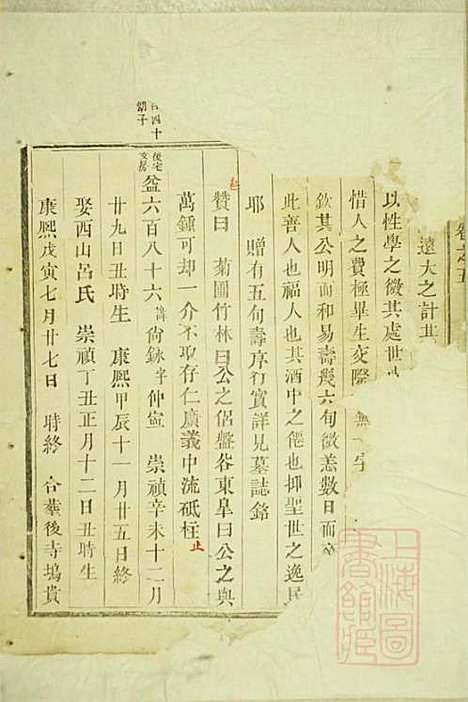 卷之五
遠大之計其
以性學之微其處世
惜人之費極畢生交際無一字
欽其公明而和易壽幾六旬微恙數日而卒
此善人也福人也其酒中之僊也抑聖世之逸民
耶 贈有五旬壽序行實詳見墓誌銘
贊曰 菊圃竹林曰公之侶盤谷東皐曰公之與
萬鍾可却一介不取存仁廣義中流砥柱
止
四十
後宅
支居
益六百八十六 諱尚銶字仲寧 崇禎辛未十二月
廿九日丑時生 康熙甲辰十一月廿五日終
娶西山呂氏 崇禎丁丑正月十二日丑時生
康熙戊寅七月廿七日 時終 合塟後寺塢貴
上海圖書館藏